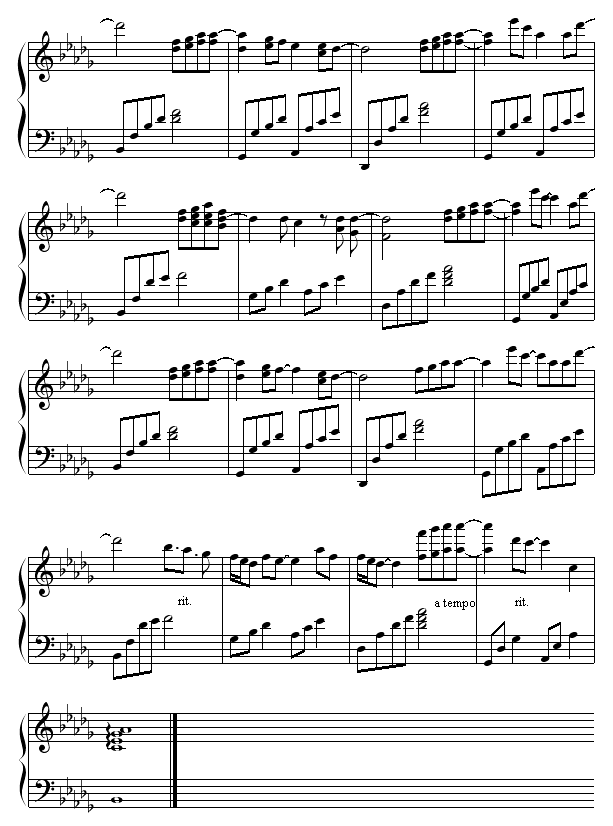 rit.
a tempo
rit.